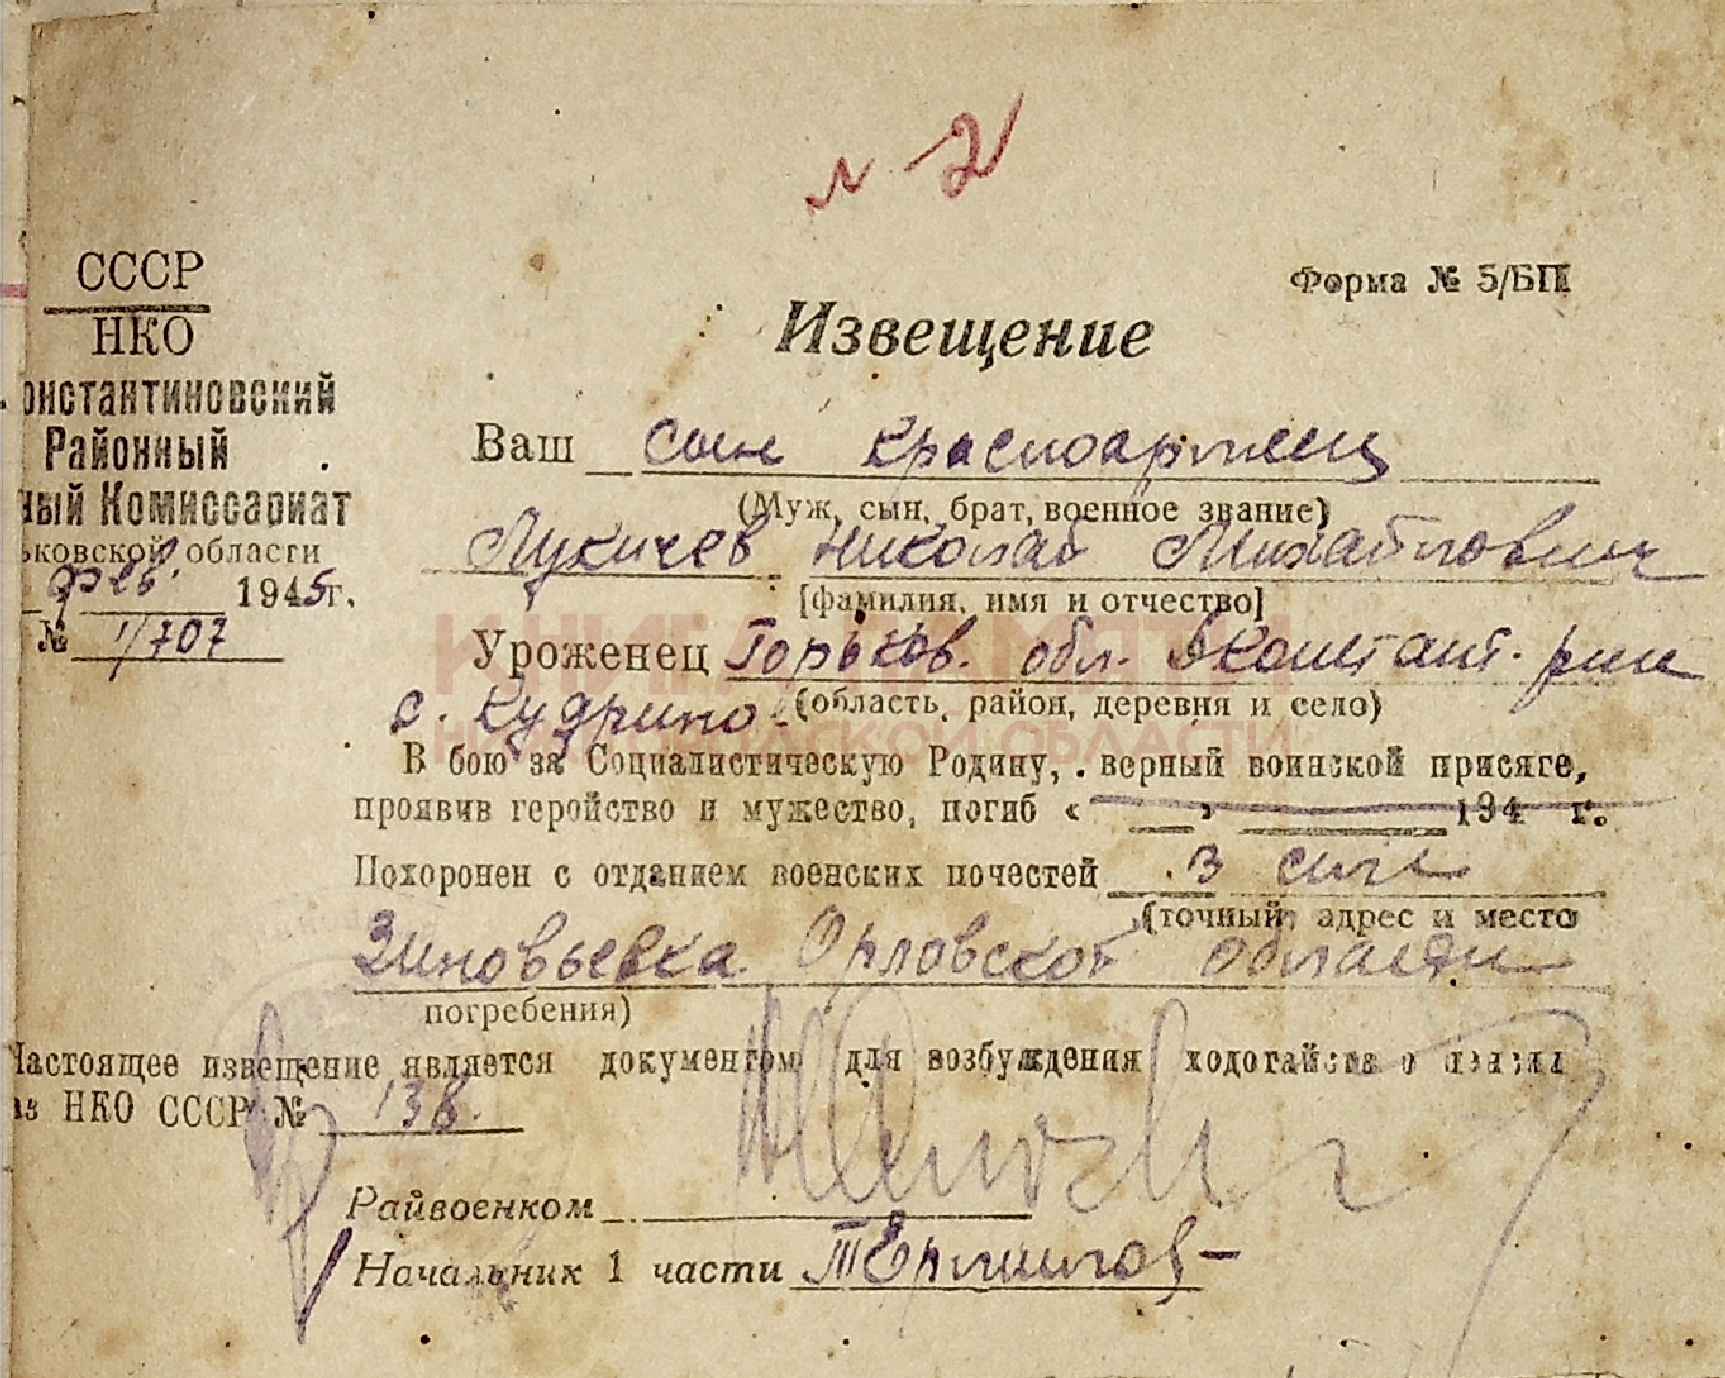 № 2
СССР
НКО
онстантиновский
Районный
ный Комиссариат
ьковской области
фев. 1945г.
№ 1/707
Форма № 5/БП
Извещение
Ваш сын красноармеец
(Муж, сын, брат, военное звание)
Лукичев Николай Михайлович
[фамилия, имя и отчество]
Уроженец Горьков. обл. Дконстант. р-на
с. Кудрино (область, район, деревня и село)
В бою за Социалистическую Родину, верный воинской присяге,
проявив геройство и мужество, погиб « » 194 г.
Похоронен с отданием военских почестей в
(точный адрес и место
Зиновьевка Орловской области
погребения)
Настоящее извещение является документом для возбуждения ходотайства о пенсии
аз НКО СССР №
Райвоенком
Начальник 1 части
КНИГА ПАМЯТИ
НИЖЕГОРОДСКОЙ ОБЛАСТИ